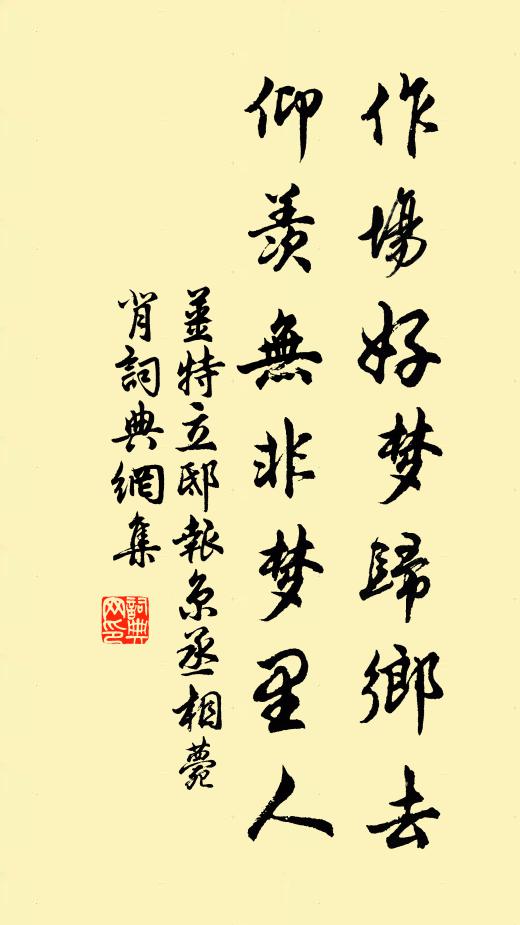 作場好梦歸鄉去
仰羨無非梦里人
薑特立邸報京丞相薨
肖詞典網集
詞典
网印